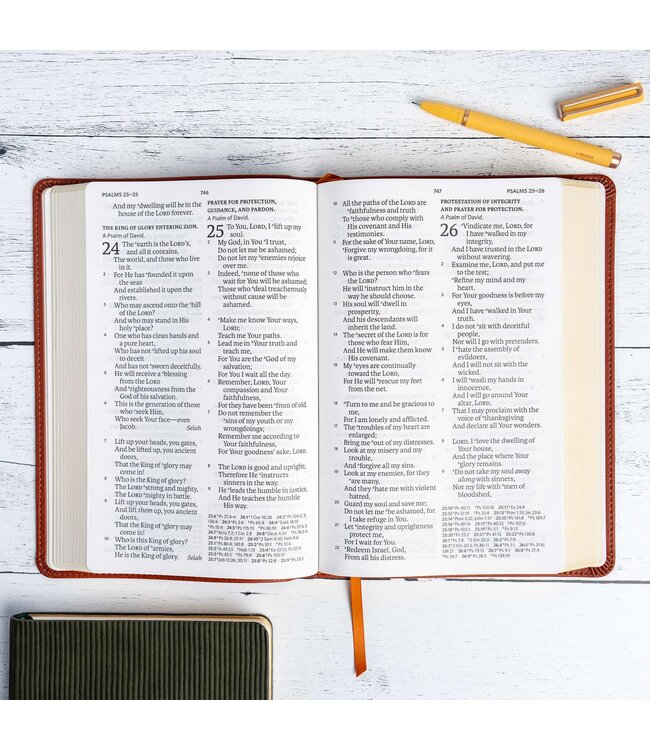 PSALMS 23–25
746
And my dwelling will be in the
house of the LORD forever.
THE KING OF GLORY ENTERING ZION.
A Psalm of David.
24 The earth is the LORD's,
and all it contains,
The world, and those who live
in it.
2 For He has founded it upon
the seas
And established it upon the
rivers.
3 Who may ascend onto the hill
of the LORD?
And who may stand in His
holy place?
4 One who has clean hands and
a pure heart,
Who has not lifted up his soul
to deceit
And has not sworn deceitfully.
5 He will receive a blessing
from the LORD
And righteousness from the
God of his salvation.
6 This is the generation of those
who seek Him,
Who seek Your face—even
Jacob. Selah
7 Lift up your heads, you gates,
And be lifted up, you ancient
doors,
That the King of glory may
come in!
8 Who is the King of glory?
The LORD strong and mighty,
The LORD mighty in battle.
9 Lift up your heads, you gates,
And lift them up, you ancient
doors,
That the King of glory may
come in!
10 Who is this King of glory?
The LORD of armies,
He is the King of glory. Selah
PRAYER FOR PROTECTION,
GUIDANCE, AND PARDON.
A Psalm of David.
25 To You, LORD, I lift up my
soul.
2 My God, in You I trust,
Do not let me be ashamed;
Do not let my enemies rejoice
over me.
3 Indeed, none of those who
wait for You will be ashamed;
Those who deal treacherously
without cause will be
ashamed.
4 Make me know Your ways,
LORD;
Teach me Your paths.
5 Lead me in Your truth and
teach me,
For You are the God of my
salvation;
For You I wait all the day.
6 Remember, LORD, Your
compassion and Your
faithfulness,
For they have been from of old.
7 Do not remember the
sins of my youth or my
wrongdoings;
Remember me according to
Your faithfulness,
For Your goodness' sake, LORD.
8 The LORD is good and upright;
Therefore He instructs
sinners in the way.
9 He leads the humble in justice,
And He teaches the humble
His way.
747
PSALMS 25–26
10 All the paths of the LORD are
faithfulness and truth
To those who comply with
His covenant and His
testimonies.
11 For the sake of Your name, LORD,
Forgive my wrongdoing, for it
is great.
12 Who is the person who fears
the LORD?
He will instruct him in the
way he should choose.
13 His soul will dwell in
prosperity,
And his descendants will
inherit the land.
14 The secret of the LORD is for
those who fear Him,
And He will make them know
His covenant.
15 My eyes are continually
toward the LORD,
For He will rescue my feet
from the net.
16 Turn to me and be gracious to
me,
For I am lonely and afflicted.
17 The troubles of my heart are
enlarged;
Bring me out of my distresses.
18 Look at my misery and my
trouble,
And forgive all my sins.
19 Look at my enemies, for they
are many,
And they hate me with violent
hatred.
20 Guard my soul and save me;
Do not let me be ashamed, for
I take refuge in You.
21 Let integrity and uprightness
protect me,
For I wait for You.
22 Redeem Israel, God,
From all his distress.
PROTESTATION OF INTEGRITY
AND PRAYER FOR PROTECTION.
A Psalm of David.
26 Vindicate me, LORD, for
I have walked in my
integrity,
And I have trusted in the LORD
without wavering.
2 Examine me, LORD, and put me
to the test;
Refine my mind and my
heart.
3 For Your goodness is before my
eyes,
And I have walked in Your
truth.
4 I do not sit with deceitful
people,
Nor will I go with pretenders.
5 I hate the assembly of
evildoers,
And I will not sit with the
wicked.
6 I will wash my hands in
innocence,
And I will go around Your
altar, LORD,
7 That I may proclaim with the
voice of thanksgiving
And declare all Your wonders.
8 LORD, I love the dwelling of
Your house,
And the place where Your
glory remains.
9 Do not take my soul away
along with sinners,
Nor my life with men of
bloodshed,